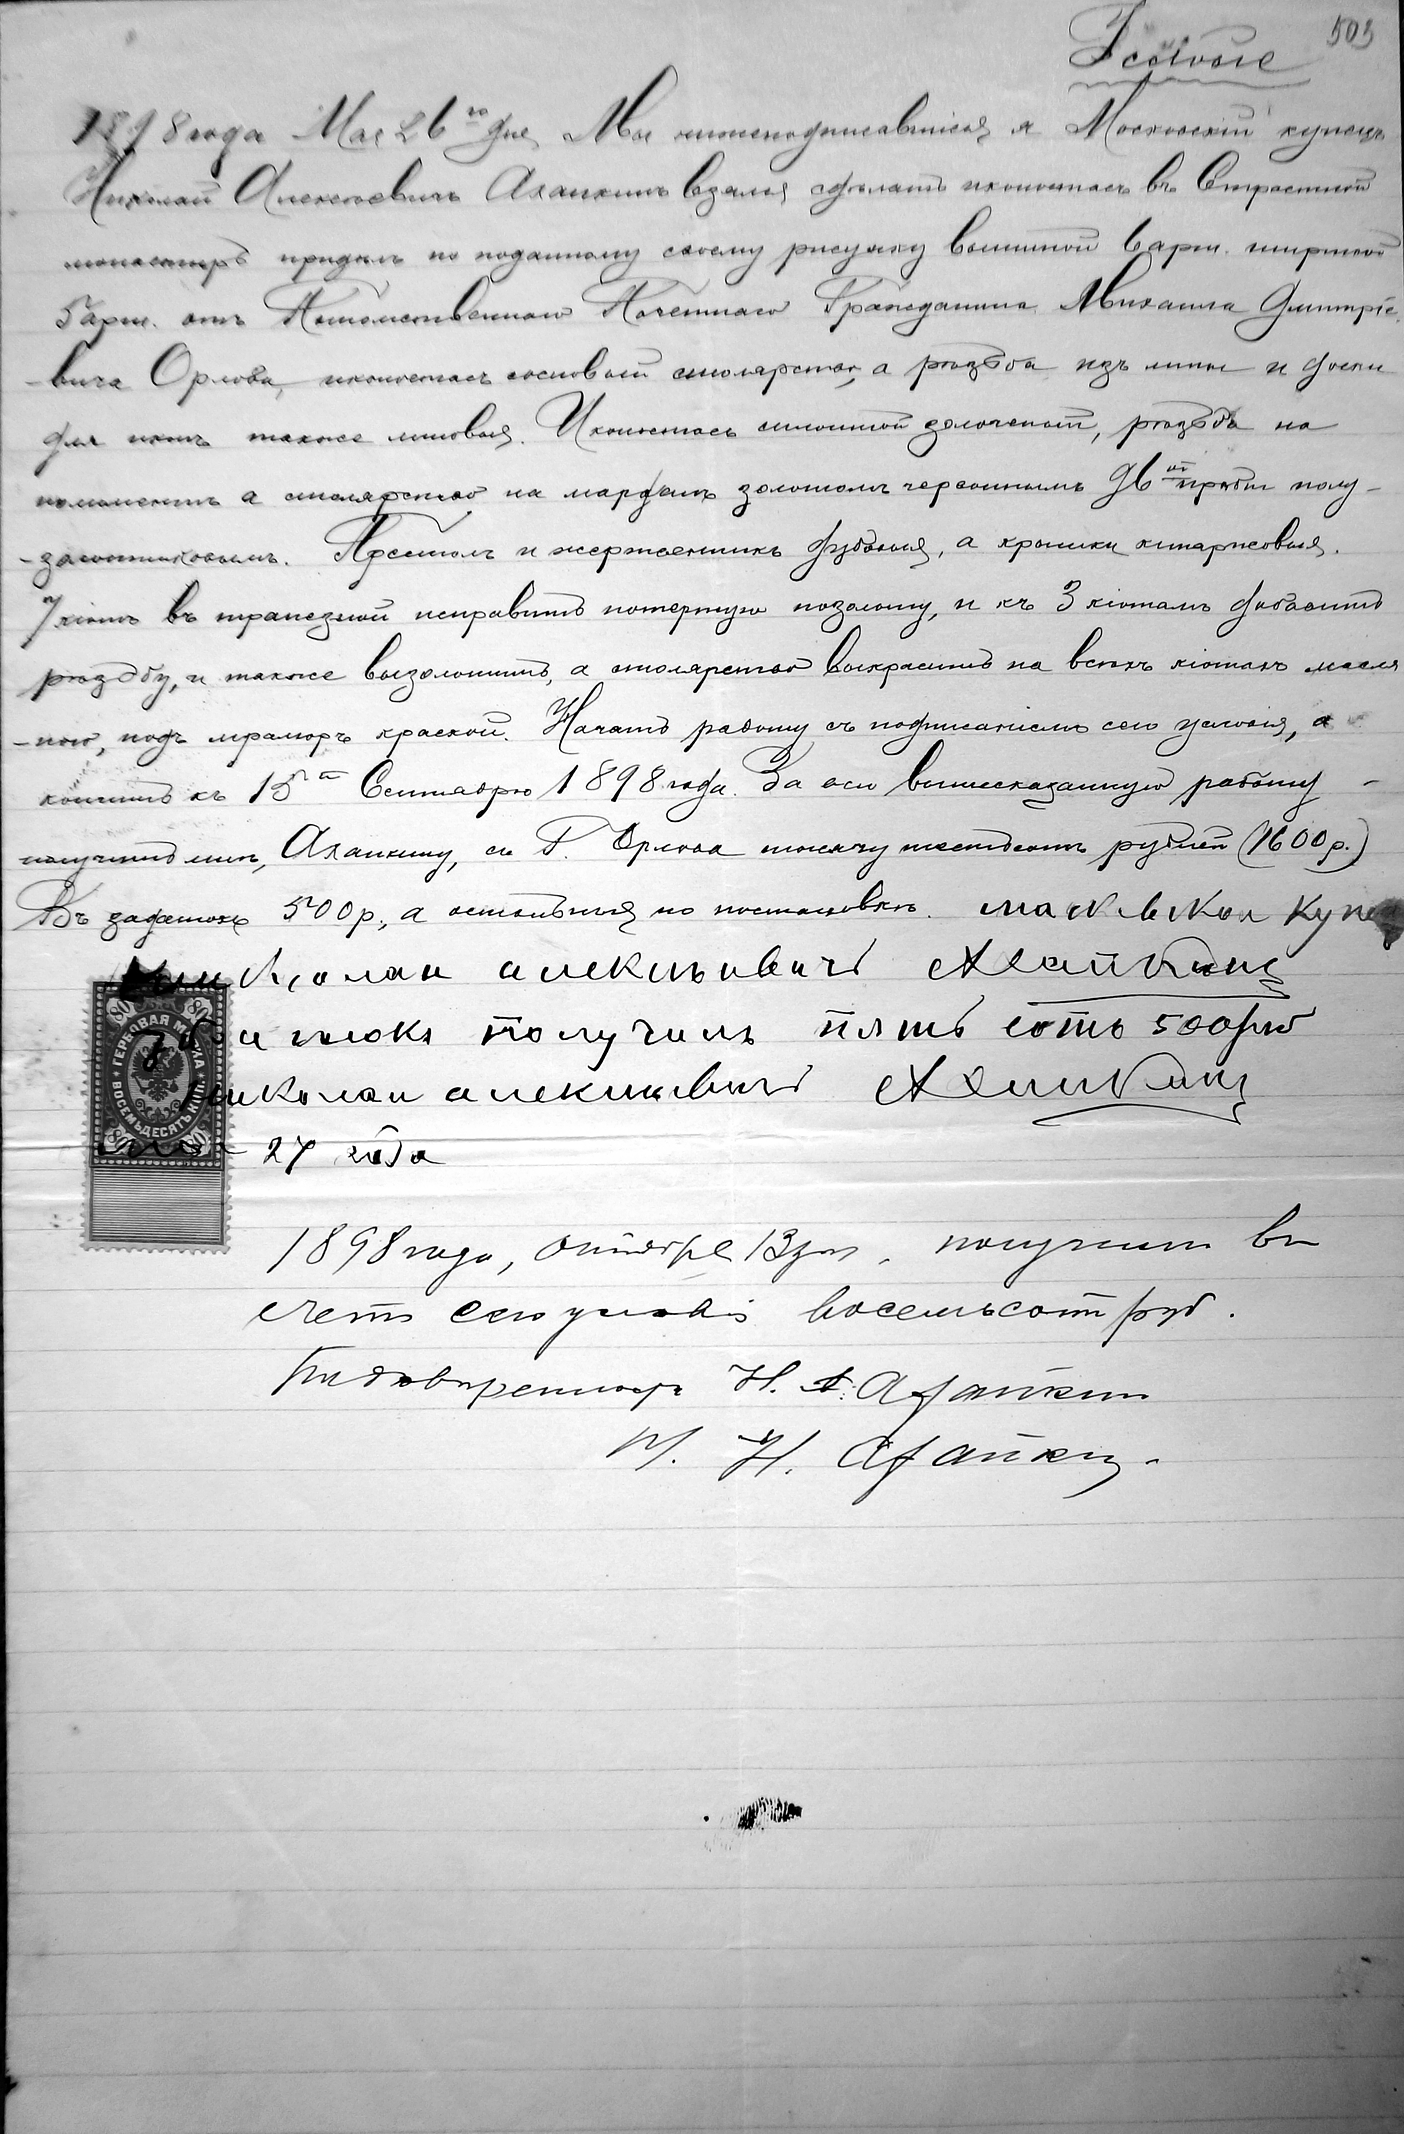 503
Условiе
1898 года Мая 26го дня Мы нижеподписавшiеся я Московскiй купецъ
Николай Алексѣевичъ Ахапкинъ взялся сдѣлать иконостасъ въ Страстной
монастырь придѣлъ по поданному своему рисунку вышиной 6 арш. шириной
5 арш. отъ Потомственнаго Почетнаго Гражданина Михаила Дмитрiе
-вича Орлова, иконостасъ сосновый столярство, а рѣзьба изъ липы и доски
для иконъ также липовыя. Иконостасъ сплошной золоченый, рѣзьба на
полиментъ а столярство на мардань золотомъ червоннымъ 96ой пробы полу-
-золотниковымъ. Престолъ и жертвенникъ дубовыя, а крышки кипарисовыя.
7 кiотъ въ трапезной исправить потертую позолоту, и къ 3 кiотамъ добавить
рѣзьбу, и также вызолотить, а столярство выкрасить на всѣхъ кiотахъ масля
-ною, подъ мраморъ краской. Начать работу съ подписанiемъ сего условiя, а
кончить къ 15му Сентябрю 1898 года. За всю вышесказанную работу -
получить мнѣ, Ахапкину, съ Г. Орлова тысячу шестьсотъ рублей (1600 р.)
Въ задатокъ 500 р., а остальныя по постановкѣ. масковскои купец
николаи алексѣевичъ Ахапкинъ
задатокъ получилъ пять сотъ 500 руб
николаи алексѣевичъ Ахапкинъ
мая 27 года
ГЕРБОВАЯ МАРКА
ВОСЕМЬДЕСЯТЪ КОП.
80 80
80 80
1898 года, октября 13 дня, получилъ въ
счетъ сего условiя восемьсотъ руб.
По довѣренности Н. А. Ахапкина
М. Н. Ахапкинъ.